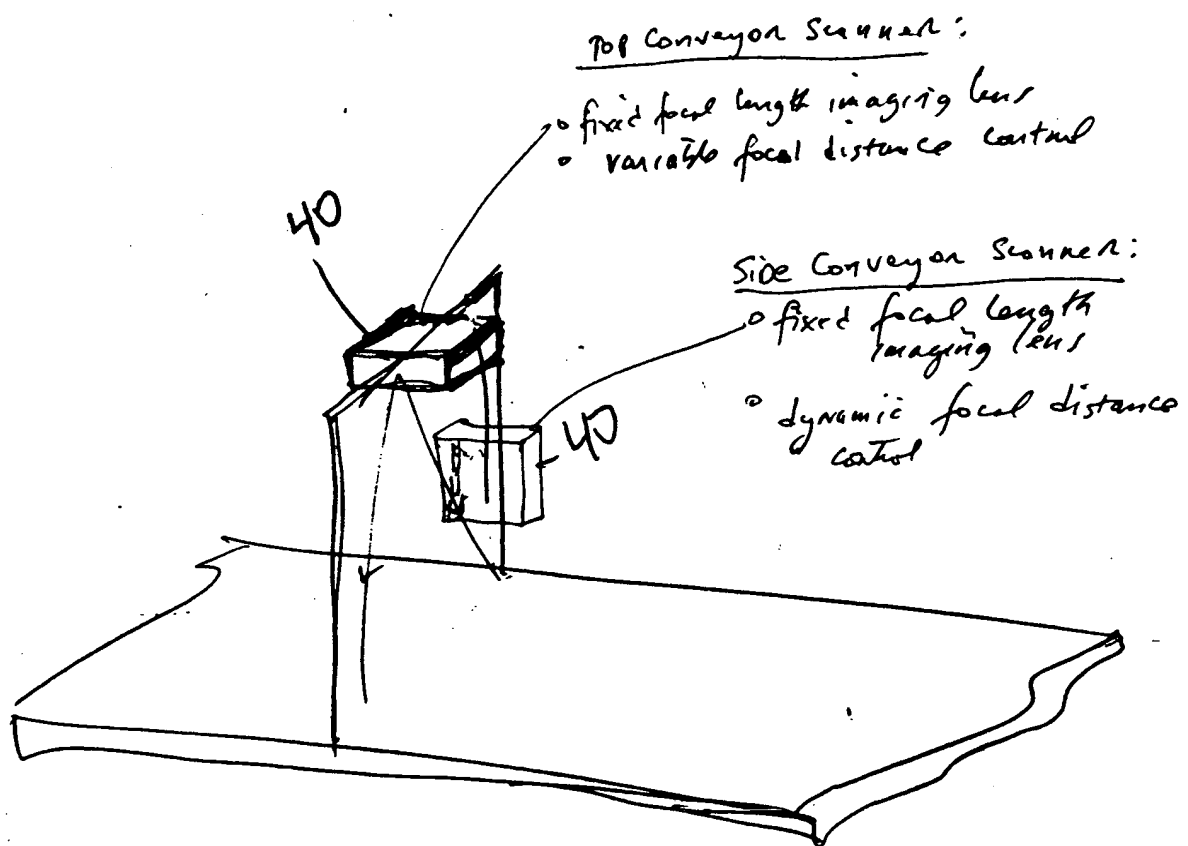 Top Conveyor Scanner:
° fixed focal length imaging lens
• variable focal distance control
40
Side Conveyor Scanner:
° fixed focal length
imaging lens
° dynamic focal distance
control
40